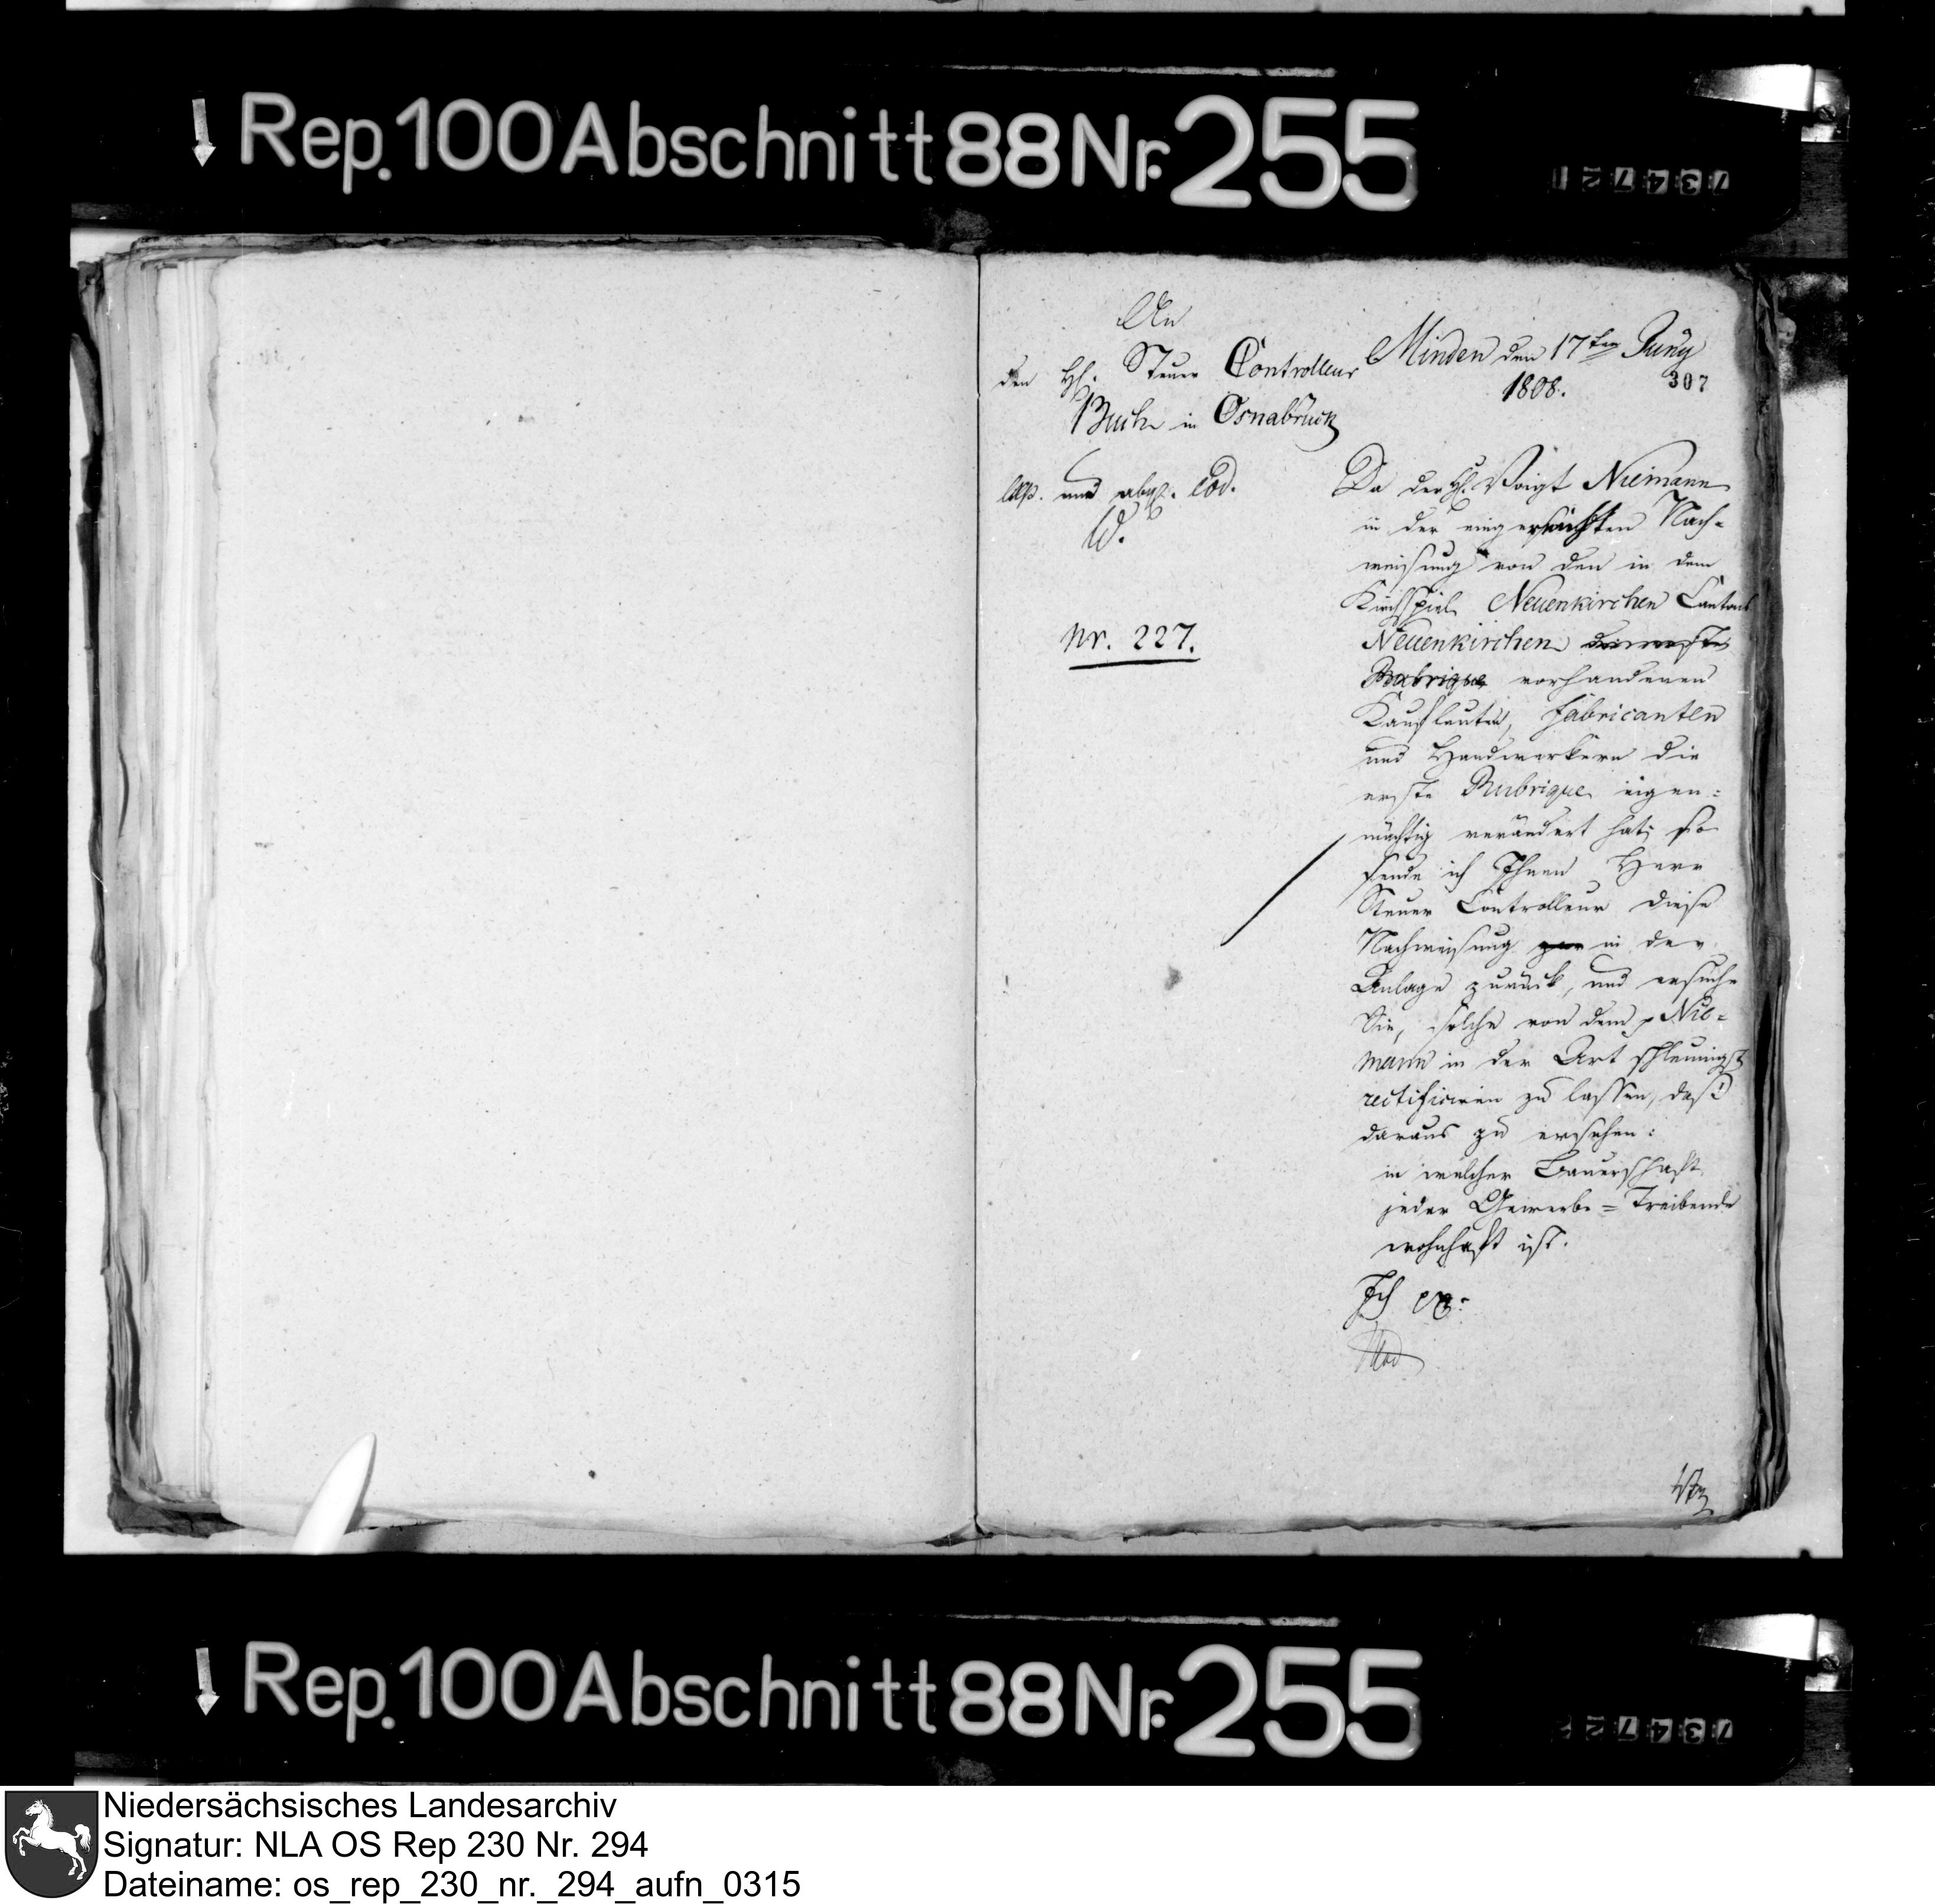 Rep. 100 Abschnitt 88 Nr. 255
An
den H. Steuer Controlleur
Buch in Osnabrück
Minden den 17ten Juny
1808.
307
und abges. eod.
W.
Nr. 227.
Da der H. Voigt Niemann
in der eingereichten Nach-
weisung von den in dem
Kirchspiel Neuenkirchen Cantons
Neuenkirchen
Rubrique vorhandenen
Kaufleuten, Fabricanten
und Handwerkern die
erste Rubrique eigen=
mächtig verändert hat; so
sende ich Ihnen Herr
Steuer Controlleur diese
Nachweisung in der
Anlage zurück, und ersuche
Sie, solche von dem p Nie-
mann in der Art schleunigst
rectificiren zu lassen, daß
daraus zu ersehen:
in welcher Bauerschaft
jeder Gewerbe=Treibende
wohnhaft ist.
Ich
Rep. 100 Abschnitt 88 Nr. 255
Niedersächsisches Landesarchiv
Signatur: NLA OS Rep 230 Nr. 294
Dateiname: os_rep_230_nr._294_aufn_0315